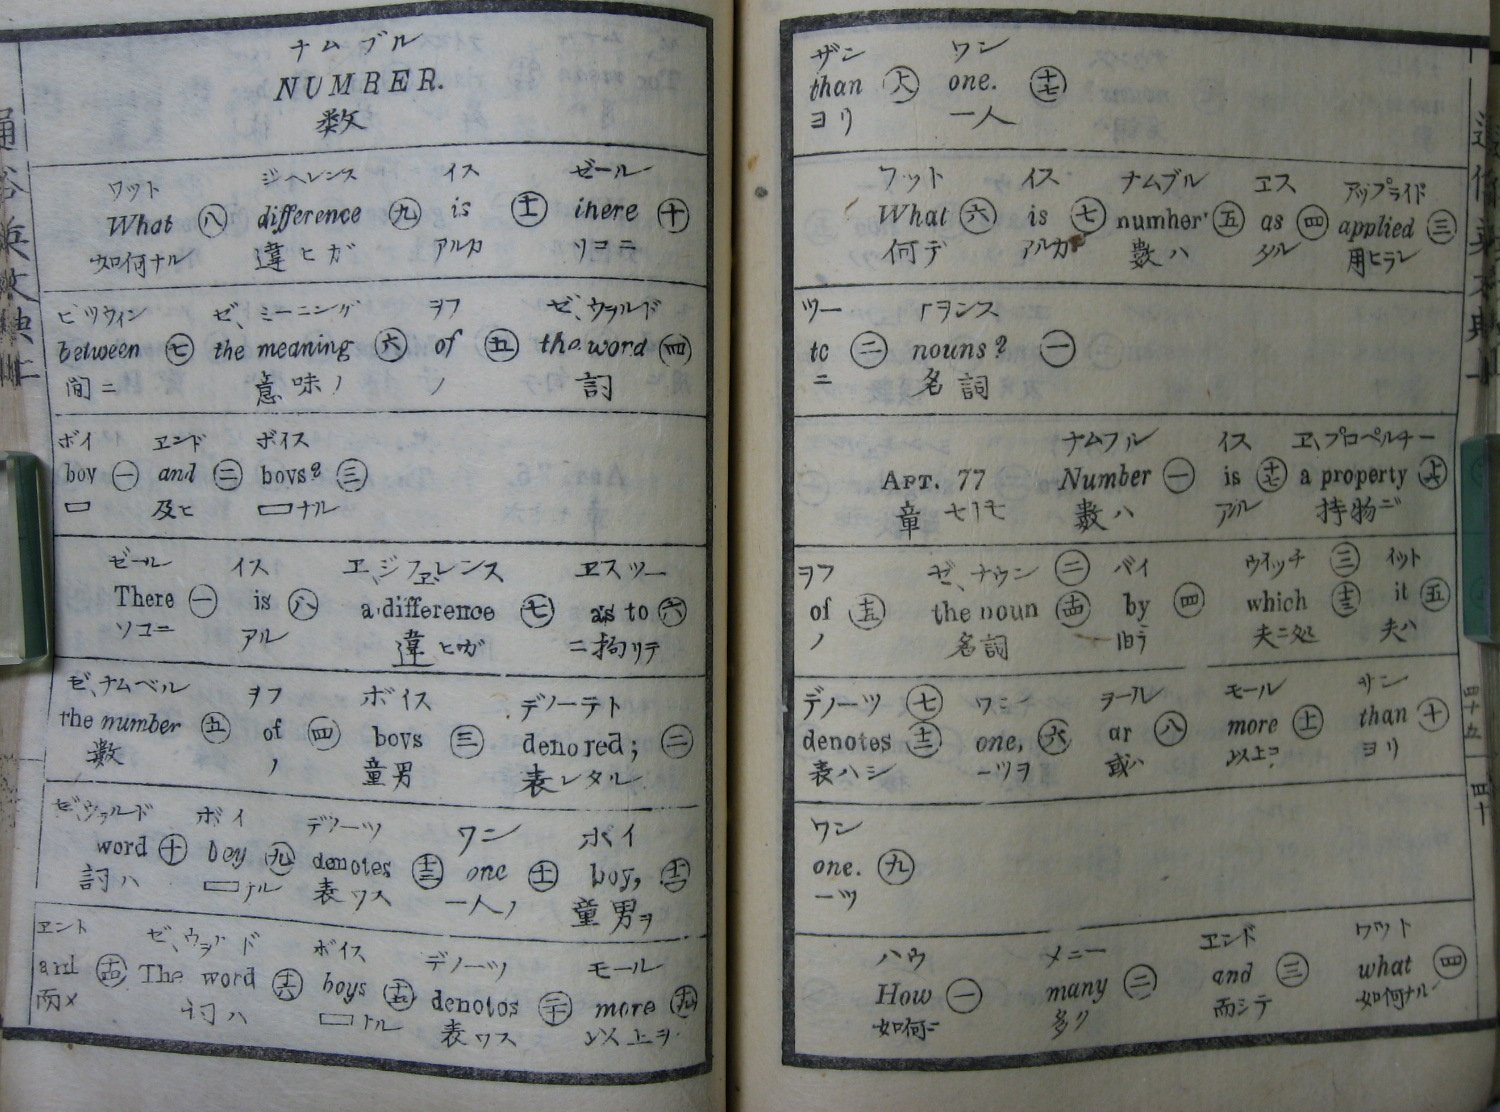 ナムブル
NUMBER.
数
ワット ジヘレンス イス ゼール
What ㊇ difference ㊈ is ⼗⼀ there ㊉
如何ナル 違ヒガ アルカ ソコニ
ビツウィン ゼ、ミーニング ヲフ ゼ、ウヲルド
between ㊆ the meaning ㊅ of ㊄ the word ㊃
間ニ 意味ノ ノ 詞
ボイ ヱンド ボイス
boy ㊀ and ㊁ boys? ㊂
及ヒ ナル
ゼール イス ヱ、ジフヱレンス ヱスツー
There ㊀ is ㊇ a difference ㊆ as to ㊅
ソコニ アル 違ヒガ ニ拘リテ
ゼ、ナムベル ヲフ ボイス デノーテト
the number ㊄ of ㊃ boys ㊂ denored; ㊁
數 ノ 童男 表レタル
ゼ、ウヲルド ボイ デノーツ ワン ボイ
word ㊉ boy ㊈ denotes 十三 one 十一 boy, 十二
詞ハ ナル 表ワス 一人ノ 童男ヲ
ヱント ゼ、ウヲルド ボイス デノーツ モール
and 十四 The word 十六 boys 十五 denotos 二十 more 十九
而メ 詞ハ トル 表ワス 以上ヲ
ザン ワン
than 十八 one. 十七
ヨリ 一人
ワット イス ナムブル ヱス アップライド
What ㊅ is ㊆ number ㊄ as ㊃ applied ㊂
何デ アルカ 數ハ タル 用ヒラレ
ツー ナヲンス
to ㊁ nouns? ㊀
ニ 名詞
ナムフル イス ヱ、プロペルチー
APT. 77 Number ㊀ is 十七 a property 十六
章 七十七 數ハ アル 持物デ
ヲフ ゼ、ナウン ㊁ バイ ウイッチ ㊂ イット
of 十五 the noun 十四 by ㊃ which 十三 it ㊄
ノ 名詞 由テ 夫ニ処 夫ハ
デノーツ ㊆ ワン ヲール モール ザン
denotes 十二 one, ㊅ ar ㊇ more 十一 than ㊉
表ハシ 一ツヲ 或ハ 以上ヲ ヨリ
ワン
one. ㊈
一ツ
ハウ メニー ヱンド ワット
How ㊀ many ㊁ and ㊂ what ㊃
如何ニ 多ク 而シテ 如何ナル